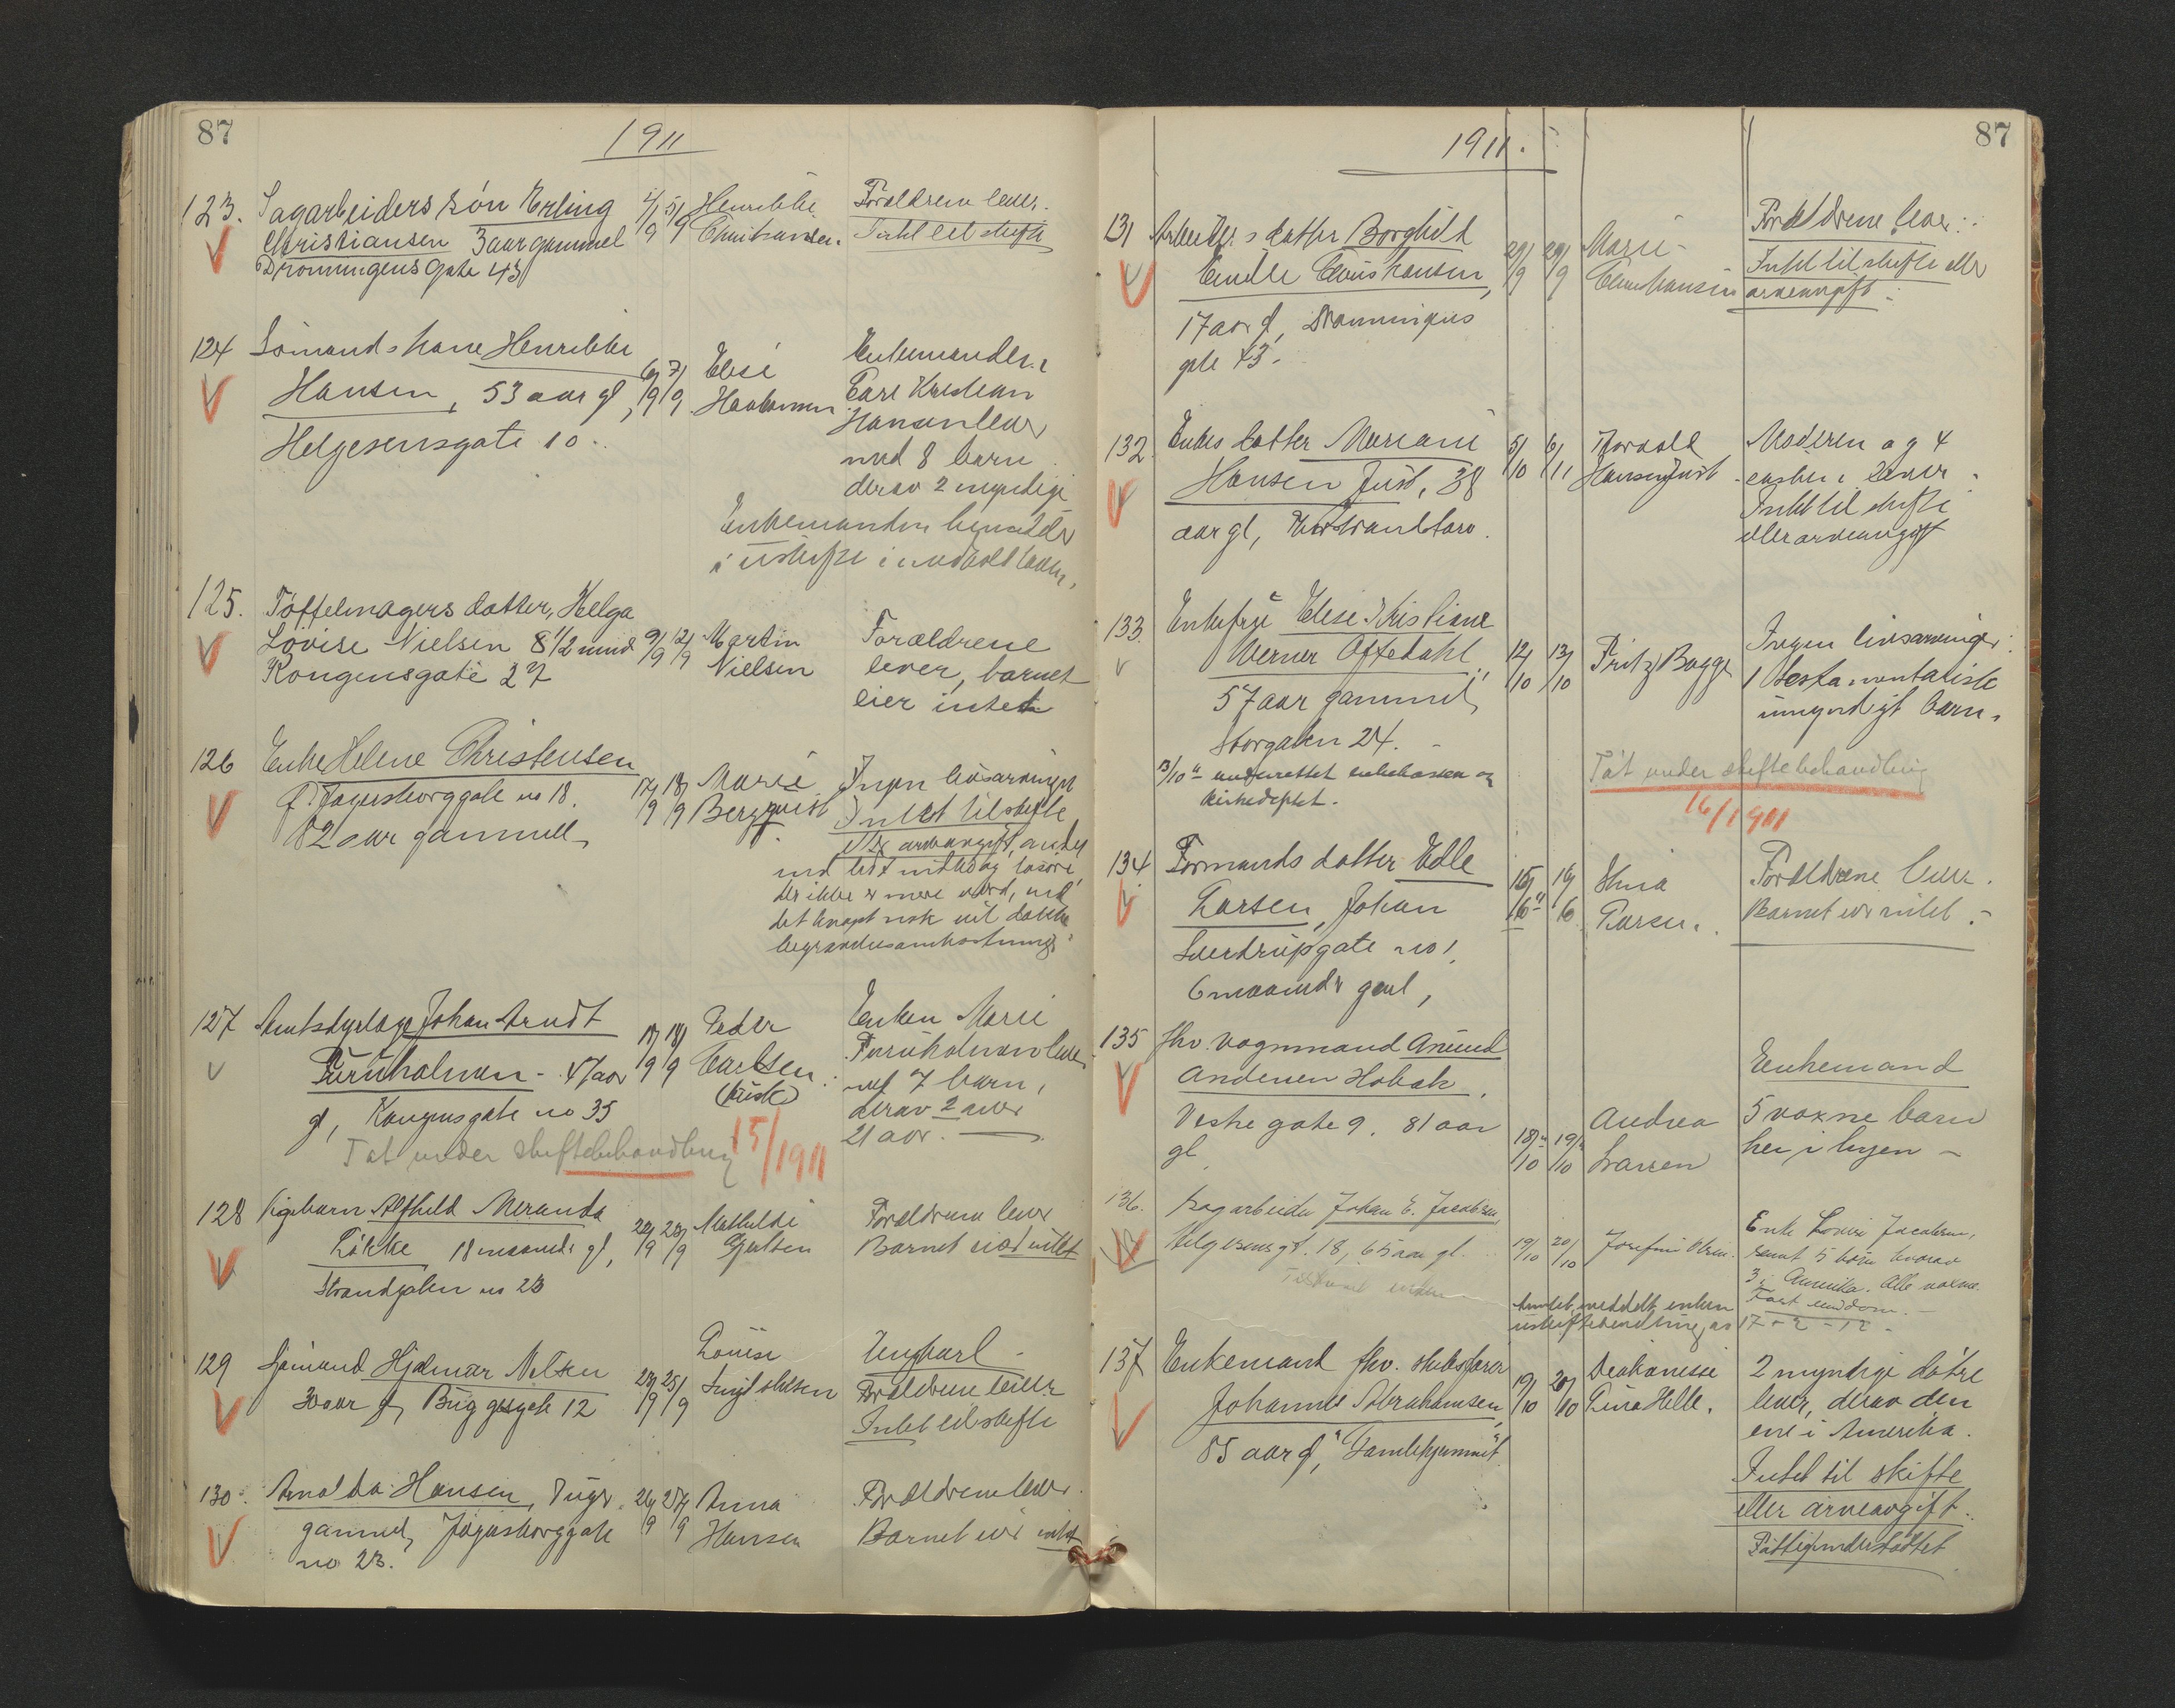 87
1911
123. Sagarbeiders søn Erling
Christiansen 3 aar gammel
Dronningens gate 43
5/9
Christiansen.
Forældrene lever.
Intet til skifte
124 Sömandskone Henrikke
Hansen, 53 aar gl,
Helgesensgate 10.
6/9 7/9
Elise
Haakonsen
Enkemanden
Carl Kristian
Hansen lever
med 8 barn
derav 2 myndige
Enkemanden hensidder
i uskiftet bo
125. Töffelmagers datter, Helga
Lovise Nielsen 8 1/2 mnd
Kongensgate 27
9/9 12/9
Martin
Nielsen
Forældrene
lever, barnet
eier intet
126 Enke Helene Christensen
Fagersborggate no 18.
82 aar gammel
17/9 18/9
Marie
Bergquist
Ingen livsarvinger
Intet til skifte
eller arveavgift, andet
end lidt indbo og løsøre
der ikke er mere værd, end
det knapt nok vil dække
begravelsesomkostninger
127 Amtsdyrlæge Johan Arndt
Furuholmen - 47 aar
gl, Kongensgate no 35
17/9 18/9
Peder
Carlsen
Enken Marie
Furuholmen lever
med 7 barn,
derav 2 over
21 aar.
Tat under skiftebehandling
15/1911
128 Pigebarn Alfhild Meranda
Løkke 18 maaneder gl,
Strandgaten no 23
22/9 23/9
Mathilde
Forældrene lever
Barnet eiet intet
129 Sjömand Hjalmar Nilsen
30 aar gl, Buggesgate 12
23/9 25/9
Louise
Ungkarl
Forældrene lever
Intet til skifte
130. Arnolda Hansen,
gammel, Fagersborggate
no 23.
26/9 27/9
Anna
Hansen
Forældrene lever.
Barnet eier intet
1911.
87
131 Arbeiders datter Borghild
Claushansen,
17 aar gl, Dronningens
gate 43.
29/9 29/9
Marie
Claushansen
Forældrene lever.
Intet til skifte eller
arveavgift.
132. Enkes datter Mariane
Hansen Just, 38
aar gl,
5/10 6/11
Thorvald
Hansen Just
Moderen og 4
søsken lever.
Intet til skifte
eller arveavgift
133. Enkefru Elise Kristiane
Werner Offedahl,
57 aar gammel,
Storgaten 24.
12/10 13/10
Fritz Bagge
Ingen livsarvinger.
1 testamentarisk
umyndigt barn.
13/10 11 underrettet enkekassen og
kirkedeptet.
Tat under skiftebehandling
16/1911
134 Formands datter Edle
Larsen, Johan
Sverdrupsgate no 1,
6 maaneder gml,
15/10 16/10
Larsen.
Forældrene lever.
Barnet eier intet.
135 fhv. vognmand Anund
Andersen Hobæk.
Vestre gate 9. 81 aar
gl
18/10 19/10
Andrea
Larsen
Enkemand
5 voxne barn
her i byen
136. Sagarbeider Johan E. Jacobsen
Helgesensgt. 18, 65 aar gl.
19/10 20/10
Josefine Olsen.
Enke Lovise Jacobsen,
samt 5 børn hvorav
3 i Amerika. Alle voxne.
Fast eiendom.
Anmeldt, meddelt enken
uskiftebevilling av 17-2-12.
137 Enkemand fhv. skibsfører
Johannes Abrahamsen,
85 aar gl, "Gamlehjemmet"
19/10 20/10
Diakonisse
Tina Helle.
2 myndige døtre
lever, derav den
ene i Amerika.
Intet til skifte
eller arveavgift.
Fattigunderstøttet